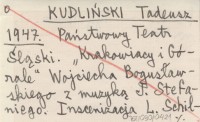 KUDLIŃSKI Tadeusz
1947. Państwowy Teatr
Śląski. „Krakowiacy i Gó-
rale" Wojciecha Bogusław-
skiego z muzyką J. Stefa-
niego. Inscenizacja L. Schil-